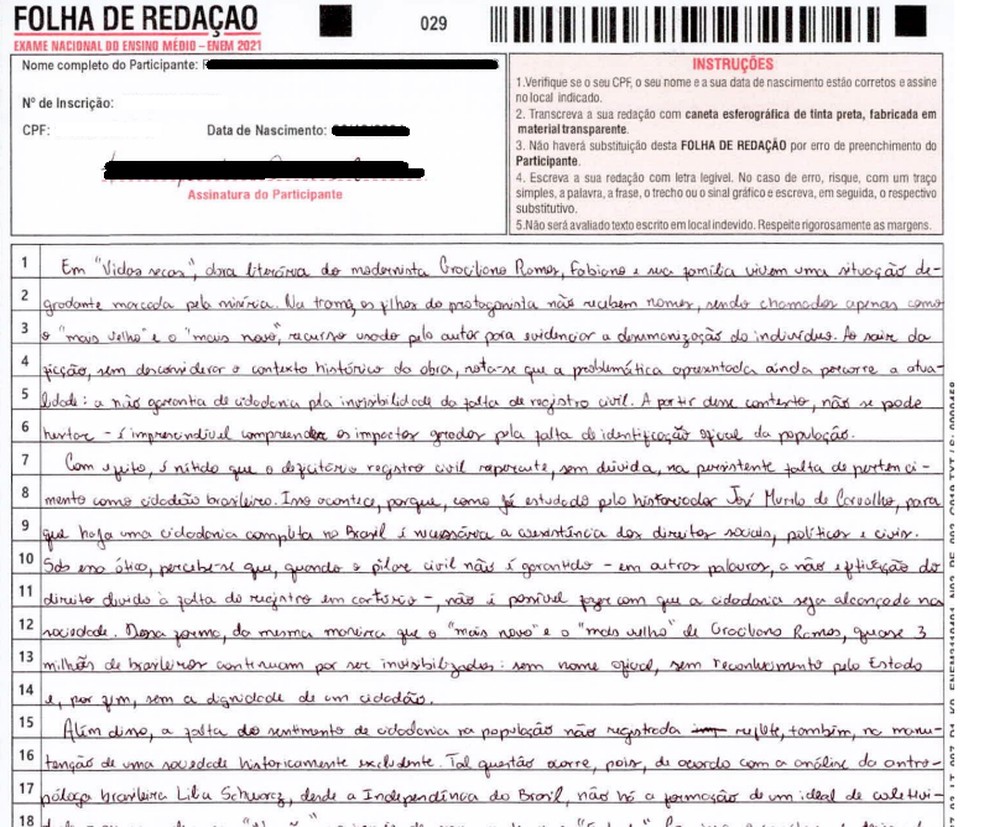 FOLHA DE REDAÇÃO
EXAME NACIONAL DO ENSINO MÉDIO – ENEM 2021
029
Nome completo do Participante:
Nº de Inscrição:
CPF:
Data de Nascimento:
Assinatura do Participante
INSTRUÇÕES
1.Verifique se o seu CPF, o seu nome e a sua data de nascimento estão corretos e assine
no local indicado.
2. Transcreva a sua redação com caneta esferográfica de tinta preta, fabricada em
material transparente.
3. Não haverá substituição desta FOLHA DE REDAÇÃO por erro de preenchimento do
Participante.
4. Escreva a sua redação com letra legível. No caso de erro, risque, com um traço
simples, a palavra, a frase, o trecho ou o sinal gráfico e escreva, em seguida, o respectivo
substitutivo.
5.Não será avaliado texto escrito em local indevido. Respeite rigorosamente as margens.
1 Em "Vidas secas", obra literária do modernista Graciliano Ramos, Fabiano e sua família vivem uma situação de-
2 gradante marcada pela miséria. Na trama, os filhos do protagonista não recebem nomes, sendo chamados apenas como
3 o "mais velho" e o "mais novo", recurso usado pelo autor para evidenciar a desumanização do indivíduo. Ao sair da
4 ficção, sem desconsiderar o contexto histórico da obra, nota-se que a problemática apresentada ainda percorre a atua-
5 lidade: a não garantia de cidadania pela invisibilidade da falta de registro civil. A partir desse contexto, não se pode
6 hesitar – é imprescindível compreender os impactos gerados pela falta de identificação oficial da população.
7 Com efeito, é nítido que o deficitário registro civil repercute, sem dúvida, na persistente falta de pertenci-
8 mento como cidadão brasileiro. Isso acontece, porque, como já estudado pelo historiador José Murilo de Carvalho, para
9 que haja uma cidadania completa no Brasil é necessária a coexistência dos direitos sociais, políticos e civis.
10 Sob essa ótica, percebe-se que, quando o pilar civil não é garantido – em outras palavras, a não efetivação do
11 direito devido à falta do registro em cartório –, não é possível fazer com que a cidadania seja alcançada na
12 sociedade. Dessa forma, da mesma maneira que o "mais novo" e o "mais velho" de Graciliano Ramos, quase 3
13 milhões de brasileiros continuam por ser invisibilizados: sem nome oficial, sem reconhecimento pelo Estado
14 e, por fim, sem a dignidade de um cidadão.
15 Além disso, a falta do sentimento de cidadania na população não registrada reflete, também, na manu-
16 tenção de uma sociedade historicamente excludente. Tal questão ocorre, pois, de acordo com a análise da antro-
17 póloga brasileira Lilia Schwarcz, desde a Independência do Brasil, não há a formação de um ideal de coletivi-
18